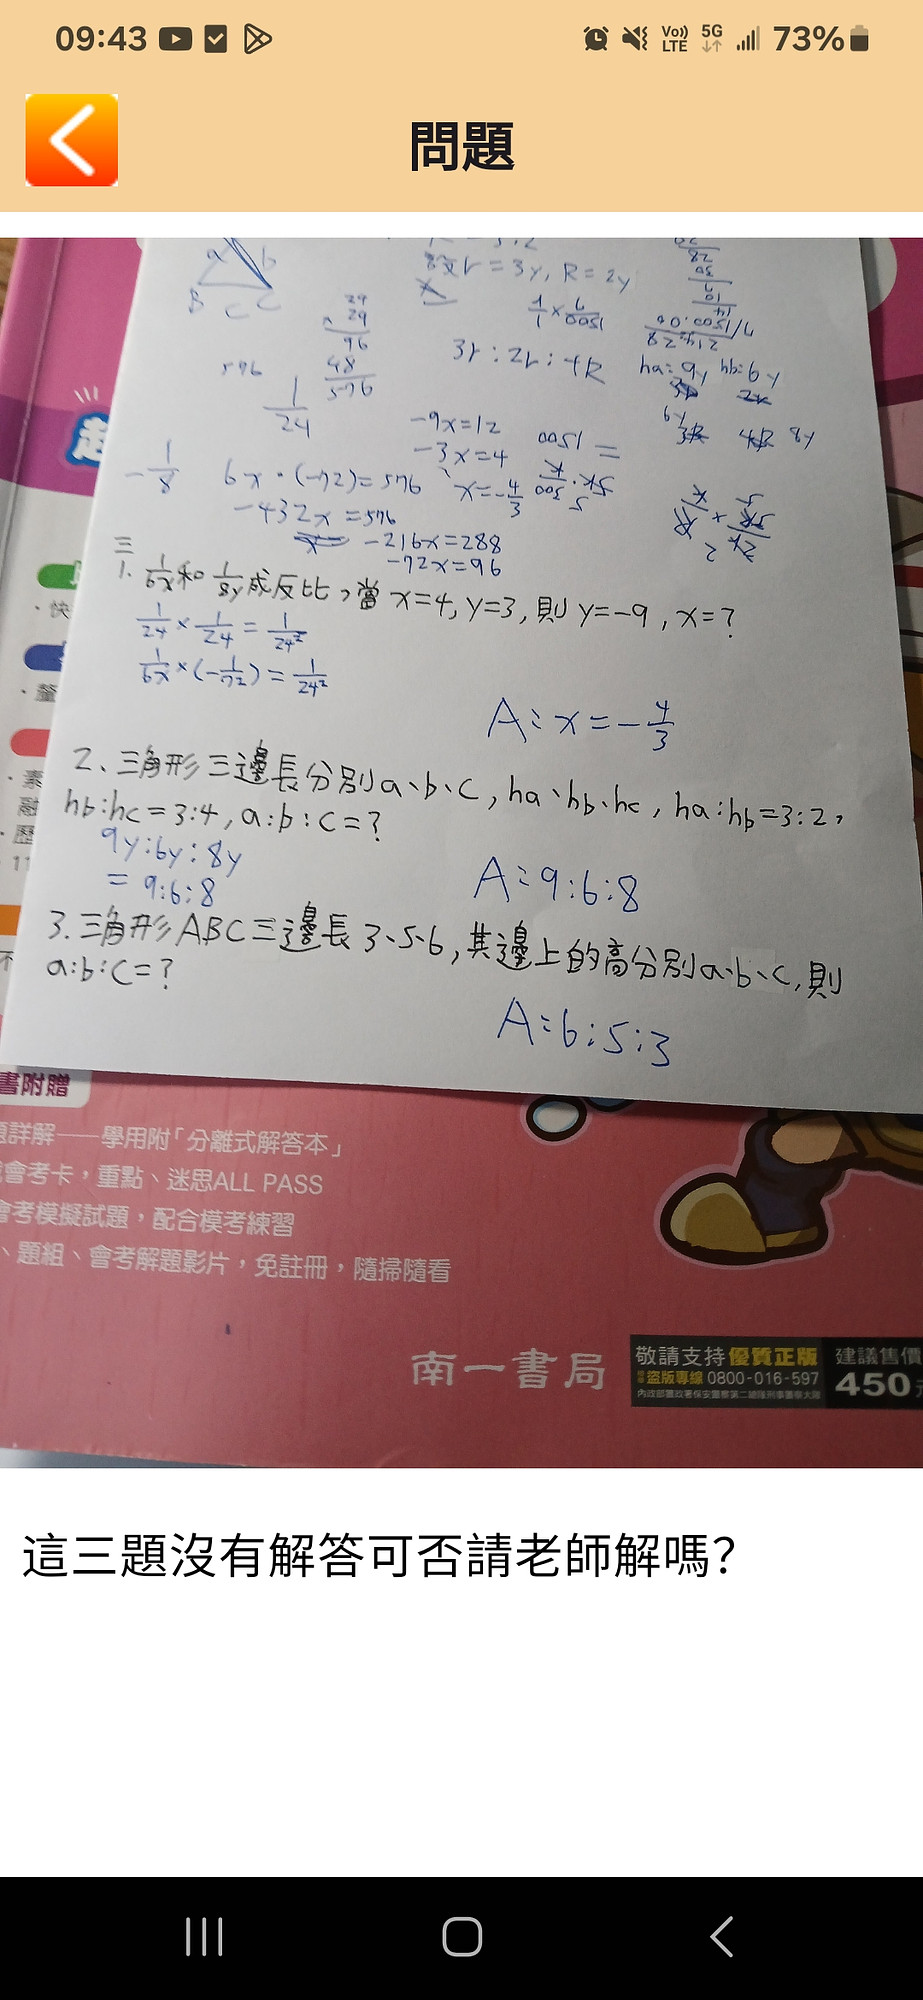 09:43
Vo)) LTE 5G 73%
問題
a b
B C C
r=3y, R=2y
29
29
96
48
576
576
1/24
3r:2r:4R
ha:9y hb:6y
8y
-9x=12
-3x=4
x=-4/3
-1/8
6x·(-72)=576
-432x=576
-216x=288
-72x=96
三
1. 1/6x和1/8y成反比,當x=4,y=3,則y=-9,x=?
1/24×1/24=1/24²
1/6x×(-1/72)=1/24²
A:x=-4/3
2、三角形三邊長分別a、b、c,ha、hb、hc,ha:hb=3:2,
hb:hc=3:4,a:b:c=?
9y:6y:8y
=9:6:8
A:9:6:8
3.三角形ABC三邊長3、5、6,其邊上的高分別a、b、c,則
a:b:c=?
A:6:5:3
書附贈
詳解——學用附「分離式解答本」
會考卡,重點、迷思ALL PASS
會考模擬試題,配合模考練習
、題組、會考解題影片,免註冊,隨掃隨看
南一書局
敬請支持優質正版
盜版專線 0800-016-597
建議售價
450元
這三題沒有解答可否請老師解嗎?